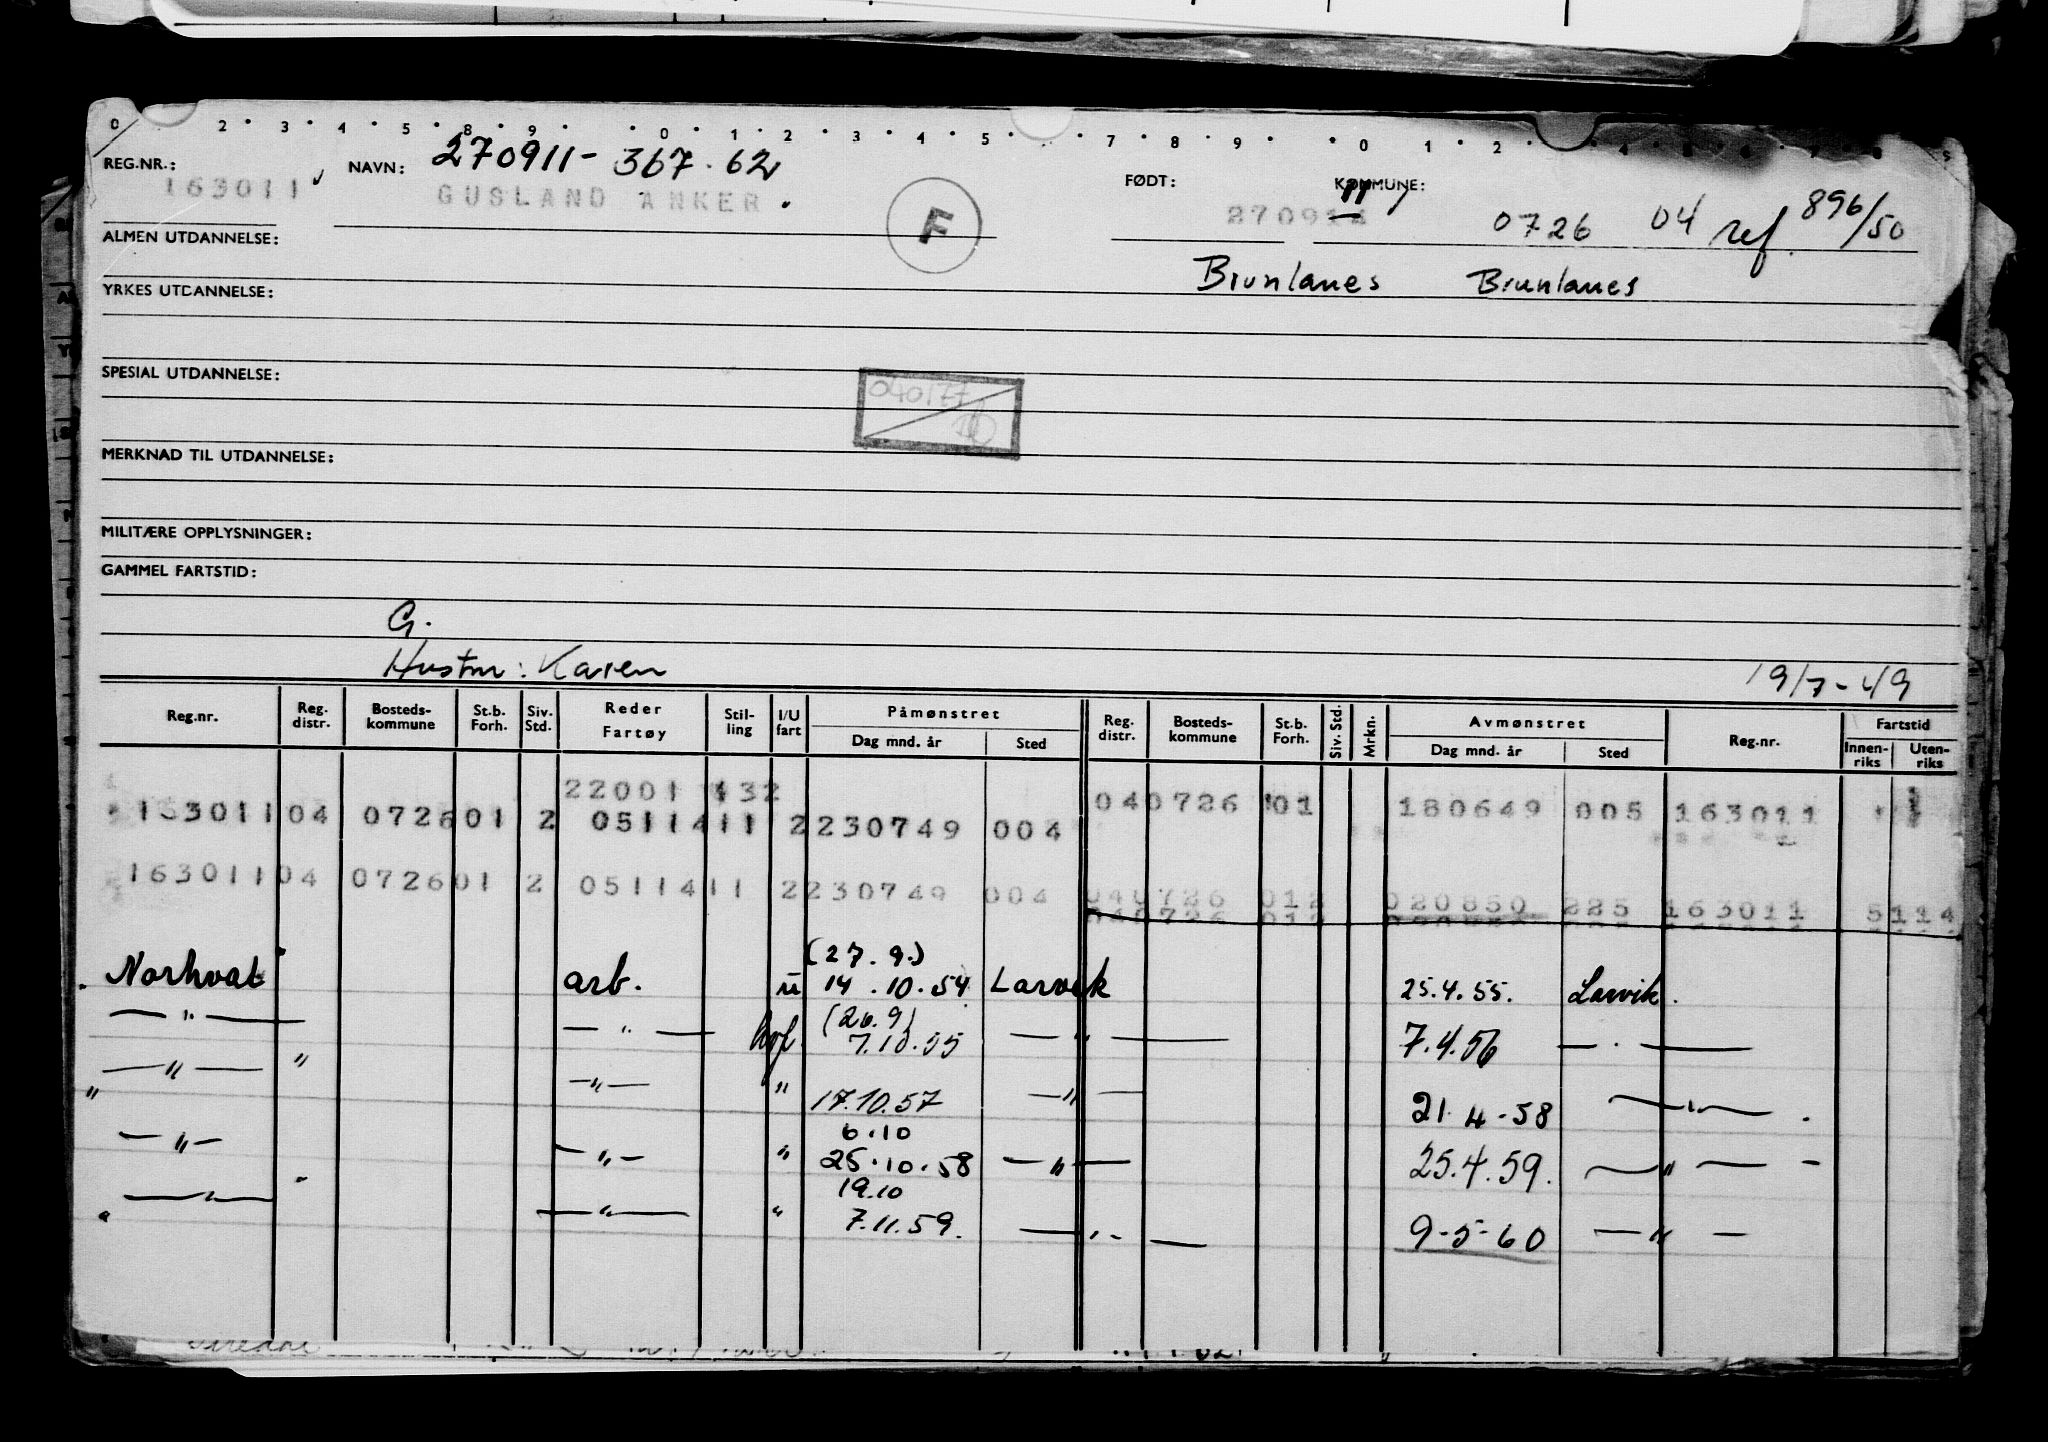 0 2 3 4 5 8 9 0 1 2 3 4 5 7 8 9 0 1 2 4 5 6 7 8 9
REG.NR.: NAVN: 270911-367.62 FØDT: KOMMUNE:
163011 GUSLAND ANKER. F 270914 11 0726 04 ref. 896/50
ALMEN UTDANNELSE:
Brunlanes Brunlanes
YRKES UTDANNELSE:
SPESIAL UTDANNELSE:
040177
MERKNAD TIL UTDANNELSE:
MILITÆRE OPPLYSNINGER:
GAMMEL FARTSTID:
G.
Hustru: Karen 19/7-49
Reg.nr. Reg. distr. Bosteds-kommune St.b. Forh. Siv. Std. Reder Fartøy Stil-ling I/U fart Påmønstret Dag mnd. år Sted Reg. distr. Bosteds-kommune St.b. Forh. Siv. Std. Mrkn. Avmønstret Dag mnd. år Sted Reg.nr. Fartstid Innen-riks Uten-riks
22001 132
163011 04 0726 01 2 0511411 2 230749 004 040726 01 180649 005 163011
163011 04 0726 01 2 0511411 2 230749 004 040726 012 020850 225 163011 5114
040726 012
(27.9.)
Norhval arb. u 14.10.54 Larvik 25.4.55. Larvik.
(26.9)
— " — — " — hvf. 7.10.55 — " — 7.4.56 — " —
— " — " — " — " 17.10.57 — " — 21.4-58 — " — .
" 6.10
— " — — " — " 25.10.58 — " — 25.4.59. — " — -
19.10
— " — " — " — " 7.11.59. — " — 9-5-60 — " —
"